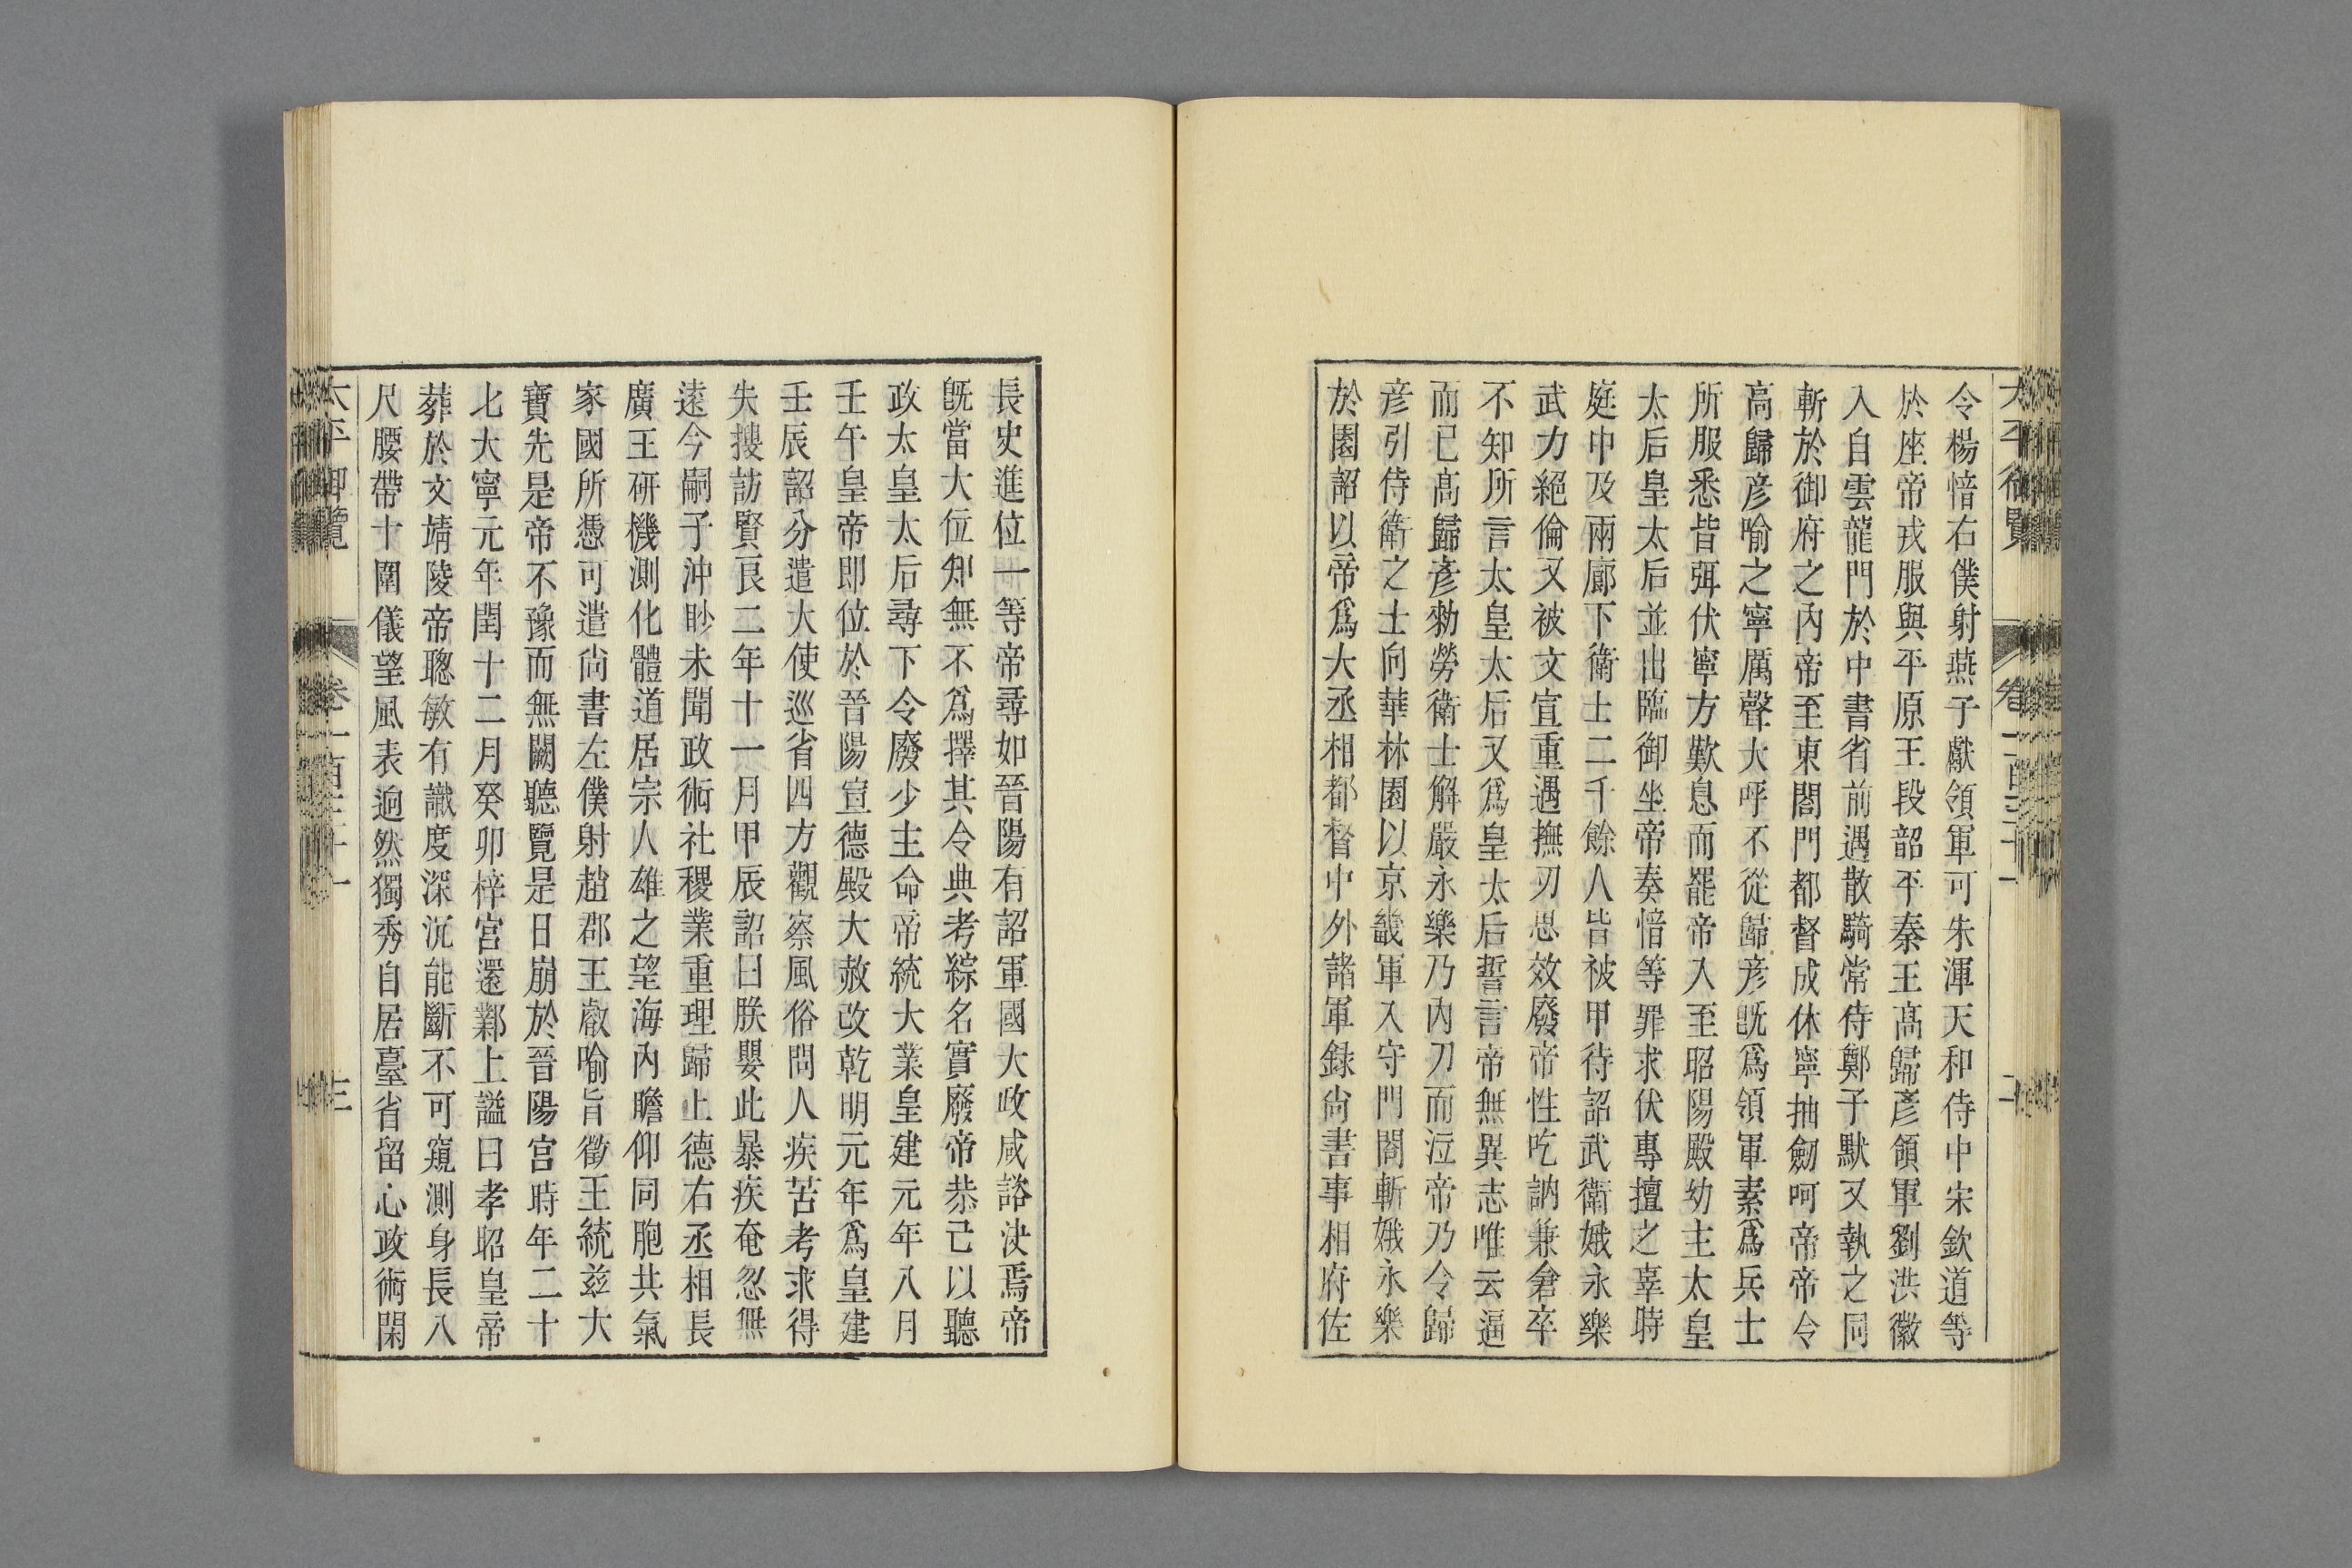 令楊愔右僕射燕子獻領軍可朱渾天和侍中宋欽道等
於座帝戎服與平原王段韶平秦王髙歸彥領軍劉洪徽
入自雲龍門於中書省前遇散騎常侍鄭子默又執之同
斬於御府之內帝至東閤門都督成休寧抽劒呵帝帝令
高歸彥喻之寧厲聲大呼不從歸彥旣爲領軍素爲兵士
所服悉皆弭伏寧方歎息而罷帝入至昭陽殿幼主太皇
太后皇太后並出臨御坐帝奏愔等罪求伏專擅之辜時
庭中及兩廊下衛士二千餘人皆被甲待詔武衛娥永樂
武力絕倫又被文宣重遇撫刃思效廢帝性吃訥兼倉卒
不知所言太皇太后又爲皇太后誓言帝無異志唯云逼
而已髙歸彥勑勞衛士解嚴永樂乃內刀而泣帝乃令歸
彥引侍衛之士向華林園以京畿軍入守門閤斬娥永樂
於園詔以帝爲大丞相都督中外諸軍録尙書事相府佐
長史進位一等帝尋如晉陽有詔軍國大政咸諮決焉帝
旣當大位知無不爲擇其令典考綜名實廢帝恭己以聽
政太皇太后尋下令廢少主命帝統大業皇建元年八月
壬午皇帝即位於晉陽宣德殿大赦改乾明元年爲皇建
壬辰詔分遣大使巡省四方觀察風俗問人疾苦考求得
失搜訪賢良二年十一月甲辰詔曰朕嬰此暴疾奄忽無
逺今嗣子沖眇未聞政術社稷業重理歸上德右丞相長
廣王研機測化體道居宗人雄之望海內瞻仰同胞共氣
家國所憑可遣尙書左僕射趙郡王叡喻旨徵王統兹大
寶先是帝不豫而無闕聽覽是日崩於晉陽宮時年二十
七大寧元年閏十二月癸卯梓宮還鄴上謚曰孝昭皇帝
葬於文靖陵帝聦敏有識度深沉能斷不可窺測身長八
尺腰帶十圍儀望風表逈然獨秀自居臺省留心政術閑
太平御覽 卷一百三十一